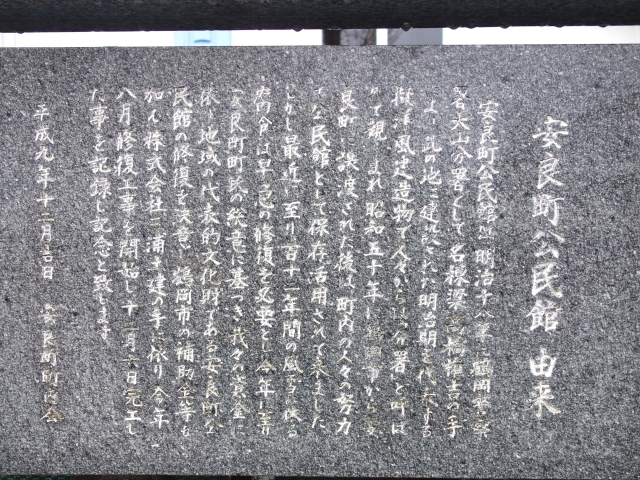 安良町公民館 由来
安良町公民館は明治十八年に鶴岡警察
署大山分署として名棟梁高橋権吉の手
により此の地に建設された明治期を代表する
擬洋風建造物で人々からは分署と呼ば
れて親しまれ昭和五十年に鶴岡市から安
良町に譲渡された後は町内の人々の努力
で公民館として保存活用されて来ました
しかし最近に至り百十二年間の風雪に
内会は早急の修復を必要とし今年
安良町町民の総意に基づき我々の資金に
依り地域の代表的文化財である安良町公
民館の修復を決意し鶴岡市の補助金等も
加え株式会社三浦土建の手に依り今年
八月修復工事を開始し十一月六日完工し
た事を記録し記念と致します
平成九年十二月吉日 安良町町内会